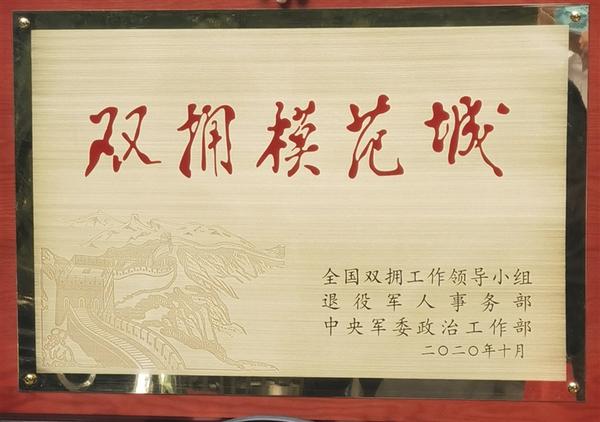 双拥模范城
全国双拥工作领导小组
退役军人事务部
中央军委政治工作部
二〇二〇年十月